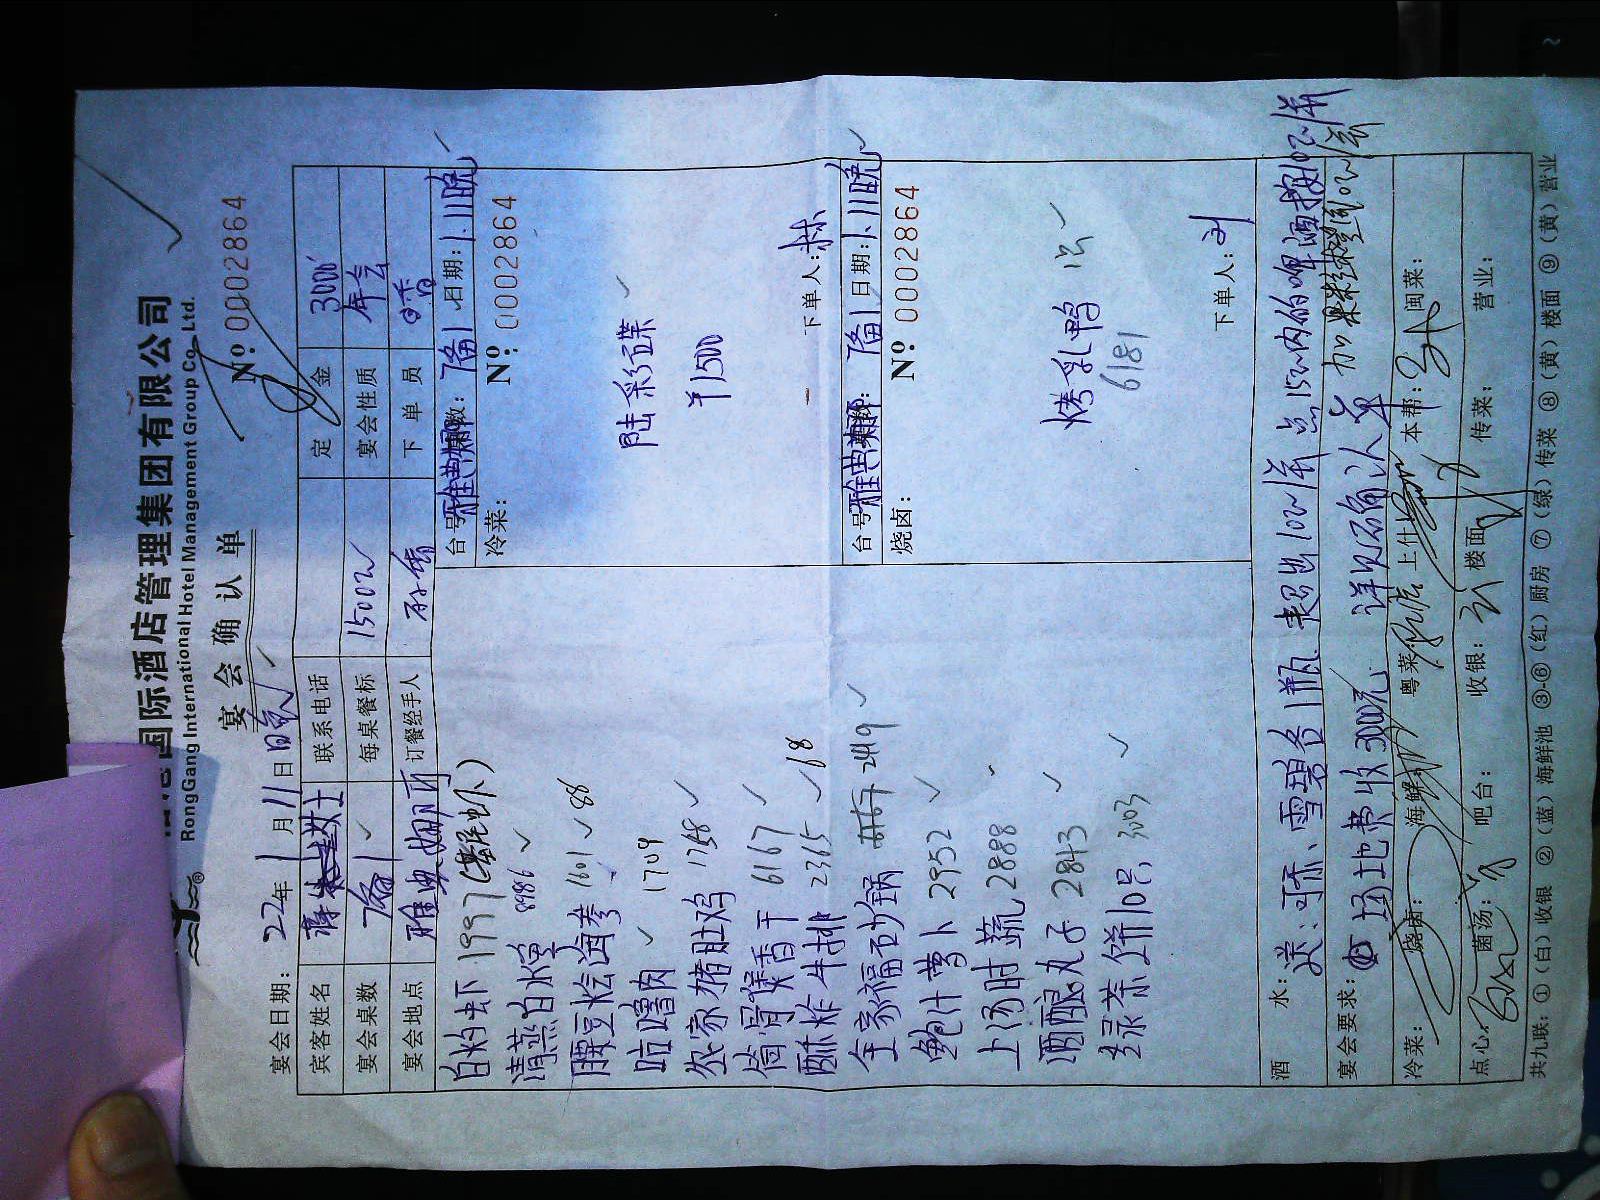 国际酒店管理集团有限公司
RongGang International Hotel Management Group Co., Ltd.
宴会确认单
No: 0002864
宴会日期: 22年1月11日晚
宾客姓名 女士 联系电话 定金 3000
宴会桌数 7备1 每桌餐标 1500元 宴会性质 年会
宴会地点 雅典娜厅 订餐经手人 下单员
白灼虾 1997 (基尾虾)
清蒸白水鱼 8986
腰豆烩海参 1601 88
咕噜肉 1709
农家猪肚鸡 1768
筒骨煲香干 6167
酥炸牛排 2365 68
全家福砂锅 2419
鲍汁萝卜 2952
上汤时蔬 2888
酒酿丸子 2843
绿茶饼10只 3023
台号 数: 7备1 日期: 1.11晚
冷菜: No: 0002864
陆彩碟
¥1500
下单人: 林
台号 数: 7备1 日期: 1.11晚
烧卤: No: 0002864
烤乳鸭
6181
下单人: 刘
酒水: 送:可乐、雪碧各1瓶 超出10元/瓶 点15元内的啤酒按10元/瓶
宴会要求: 场地费收3000元 详见确认单 加
冷菜: 烧卤: 海鲜: 粤菜 上什 本帮: 闽菜:
点心: 菌汤: 吧台: 收银: 楼面 传菜: 营业:
共九联: ①(白)收银 ②(蓝)海鲜池 ③-⑥(红)厨房 ⑦(绿)传菜 ⑧(黄)楼面 ⑨(黄)营业